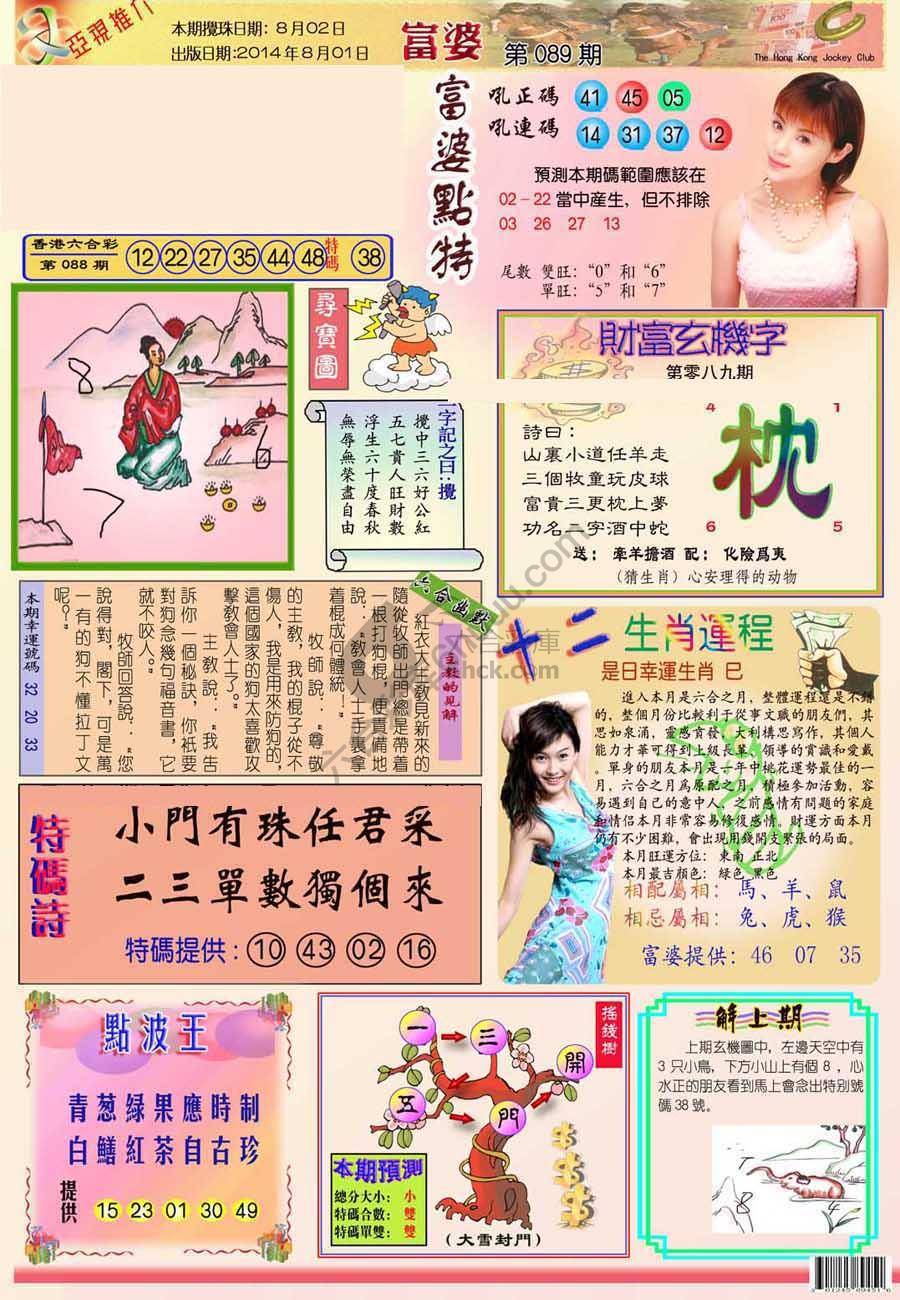 亞視推介
本期攪珠日期: 8月02日
出版日期:2014年8月01日
富婆 第 089 期
The Hong Kong Jockey Club
富婆點特
吼正碼 41 45 05
吼連碼 14 31 37 12
預測本期碼範圍應該在
02－22 當中産生，但不排除
03 26 27 13
尾數 雙旺：“0”和“6”
單旺：“5”和“7”
香港六合彩
第 088 期
12 22 27 35 44 48 特碼 38
尋寶圖
一字記之曰：攪
攪中三六好公紅
五七貴人旺財數
浮生六十度春秋
無辱無榮盡自由
財富玄機字
第零八九期
4 1
枕
6 5
詩曰：
山裏小道任羊走
三個牧童玩皮球
富貴三更枕上夢
功名一字酒中蛇
送：牽羊擔酒 配：化險爲夷
（猜生肖）心安理得的动物
六合幽默
主教的見解
紅衣大主教見新來的
隨從牧師出門總是帶着
一根打狗棍，便責備地
說：“教會人士手裏拿
着棍成何體統！”
牧師說：“尊敬
的主教，我的棍子從不
傷人，我是用來防狗的，
這個國家的狗太喜歡攻
擊教會人士了。”
主教說：“我告
訴你一個秘訣，你衹要
對狗念幾句福音書，它
就不咬人。”
牧師回答說：“您
說得對，閣下，可是萬
一有的狗不懂拉丁文
呢？”
本期幸運號碼 32 20 33
十二生肖運程
是日幸運生肖 巳
進入本月是六合之月，整體運程還是不錯
的，整個月份比較利于從事文職的朋友們，其
思如泉涌，靈感賁發，大利構思寫作，其個人
能力才華可得到上級長輩、領導的賞識和愛戴
。單身的朋友本月是一年中桃花運勢最佳的一
月，六合之月爲原配之月，積極參加活動，容
易遇到自己的意中人，之前感情有問題的家庭
和情侣本月非常容易修復感情。財運方面本月
仍有不少困難，會出現用錢開支緊張的局面。
本月旺運方位：東南 正北
本月最吉顏色：綠色 黑色
相配屬相：馬、羊、鼠
相忌屬相：兔、虎、猴
富婆提供：46 07 35
特碼詩
小門有珠任君采
二三單數獨個來
特碼提供：10 43 02 16
點波王
青葱绿果應時制
白鱔紅茶自古珍
提供 15 23 01 30 49
搖錢樹
一 三
五 門 開
本期預測
總分大小：小
特碼合數：雙
特碼單雙：雙
（大雪封門）
解上期
上期玄機圖中，左邊天空中有
3 只小鳥，下方小山上有個 8 ，心
水正的朋友看到馬上會念出特別號
碼 38 號。